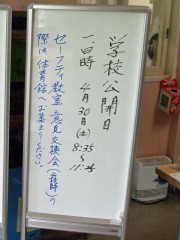 学校公開日
一、日時 4月30日(土)
8:35〜11:25
セーフティ教室 意見交換会(3校時)の
際は 体育館へお集まりください。